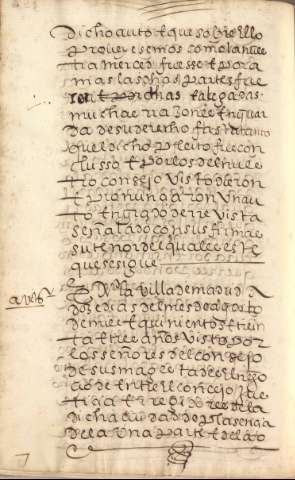 dicho auto e que sobre ello
proveyesemos como la nues
tra merced fuesse e por a
mas las dhas partes fue
ron dichas e alegadas
muchas razones en guar
da de su derecho fasta tanto
quel dicho pleito fue con
clusso e por los del nues
tro consejo visto dieron
e pronunçiaron un au
to en grado de revista
señalado con sus firmas
su tenor del qual es este
que se sigue
auto
En la villa de madrid a
doze dias del mes de agosto
de mill e quinientos e treyn
ta e tres años visto por
los señores del consejo
de sus magestades el nego
çio de entre el conçejo jus
tiçia e regidores de la
dicha çiudad de plasençia
de la una parte e de la o